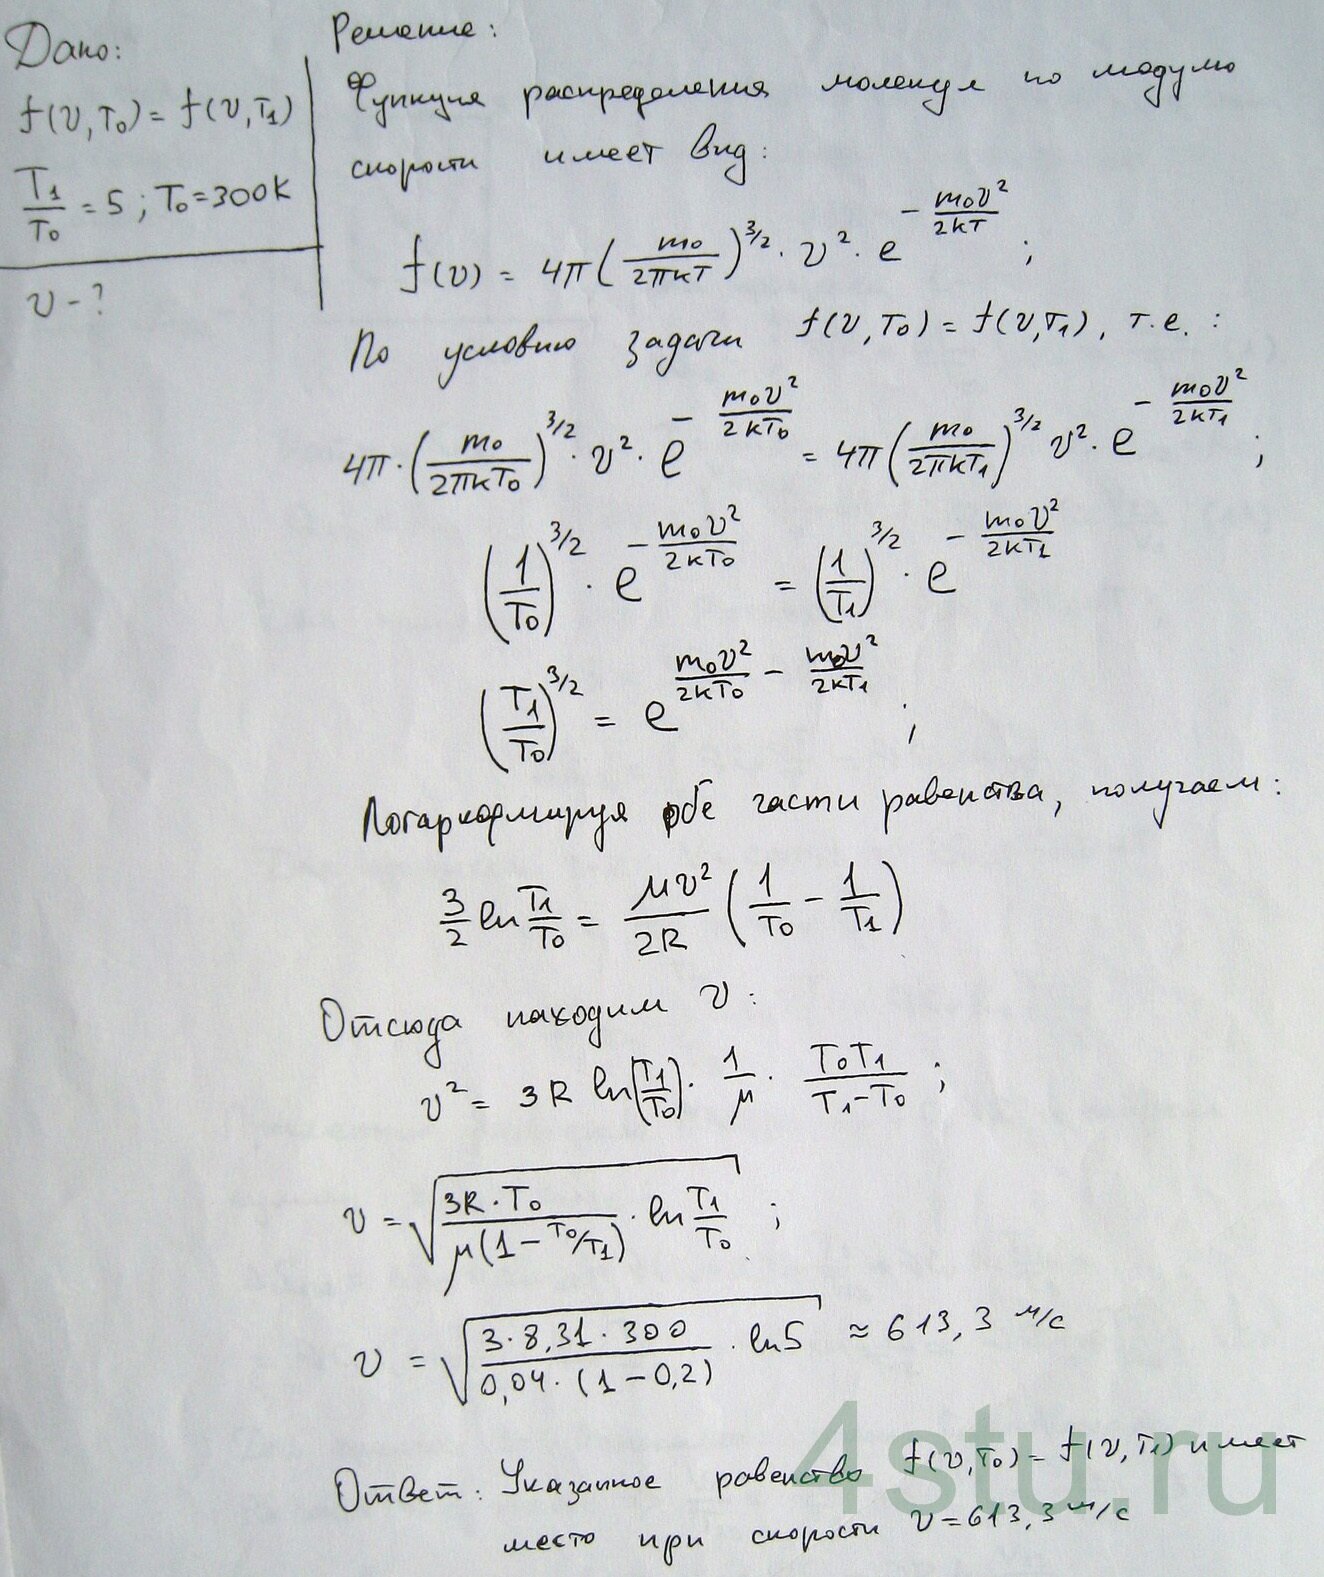 Дано:
f(v,T₀) = f(v,T₁)
T₁/T₀ = 5 ; T₀=300К
v - ?
Решение:
Функция распределения молекул по модулю
скорости имеет вид:
f(v) = 4π(m₀/2πkT)^3/2 · v² · e^(-m₀v²/2kT) ;
По условию задачи f(v,T₀) = f(v,T₁), т.е. :
4π·(m₀/2πkT₀)^3/2 · v² · e^(-m₀v²/2kT₀) = 4π(m₀/2πkT₁)^3/2 v² · e^(-m₀v²/2kT₁) ;
(1/T₀)^3/2 · e^(-m₀v²/2kT₀) = (1/T₁)^3/2 · e^(-m₀v²/2kT₁)
(T₁/T₀)^3/2 = e^(m₀v²/2kT₀ - m₀v²/2kT₁) ;
Логарифмируя обе части равенства, получаем:
3/2 ln T₁/T₀ = μv²/2R (1/T₀ - 1/T₁)
Отсюда находим v :
v² = 3R ln(T₁/T₀) · 1/μ · T₀T₁/(T₁-T₀) ;
v = √(3R·T₀/μ(1-T₀/T₁) · ln T₁/T₀) ;
v = √(3·8,31·300/0,04·(1-0,2) · ln5) ≈ 613,3 м/с
Ответ: Указанное равенство f(v,T₀) = f(v,T₁) имеет
место при скорости v=613,3 м/с
4stu.ru